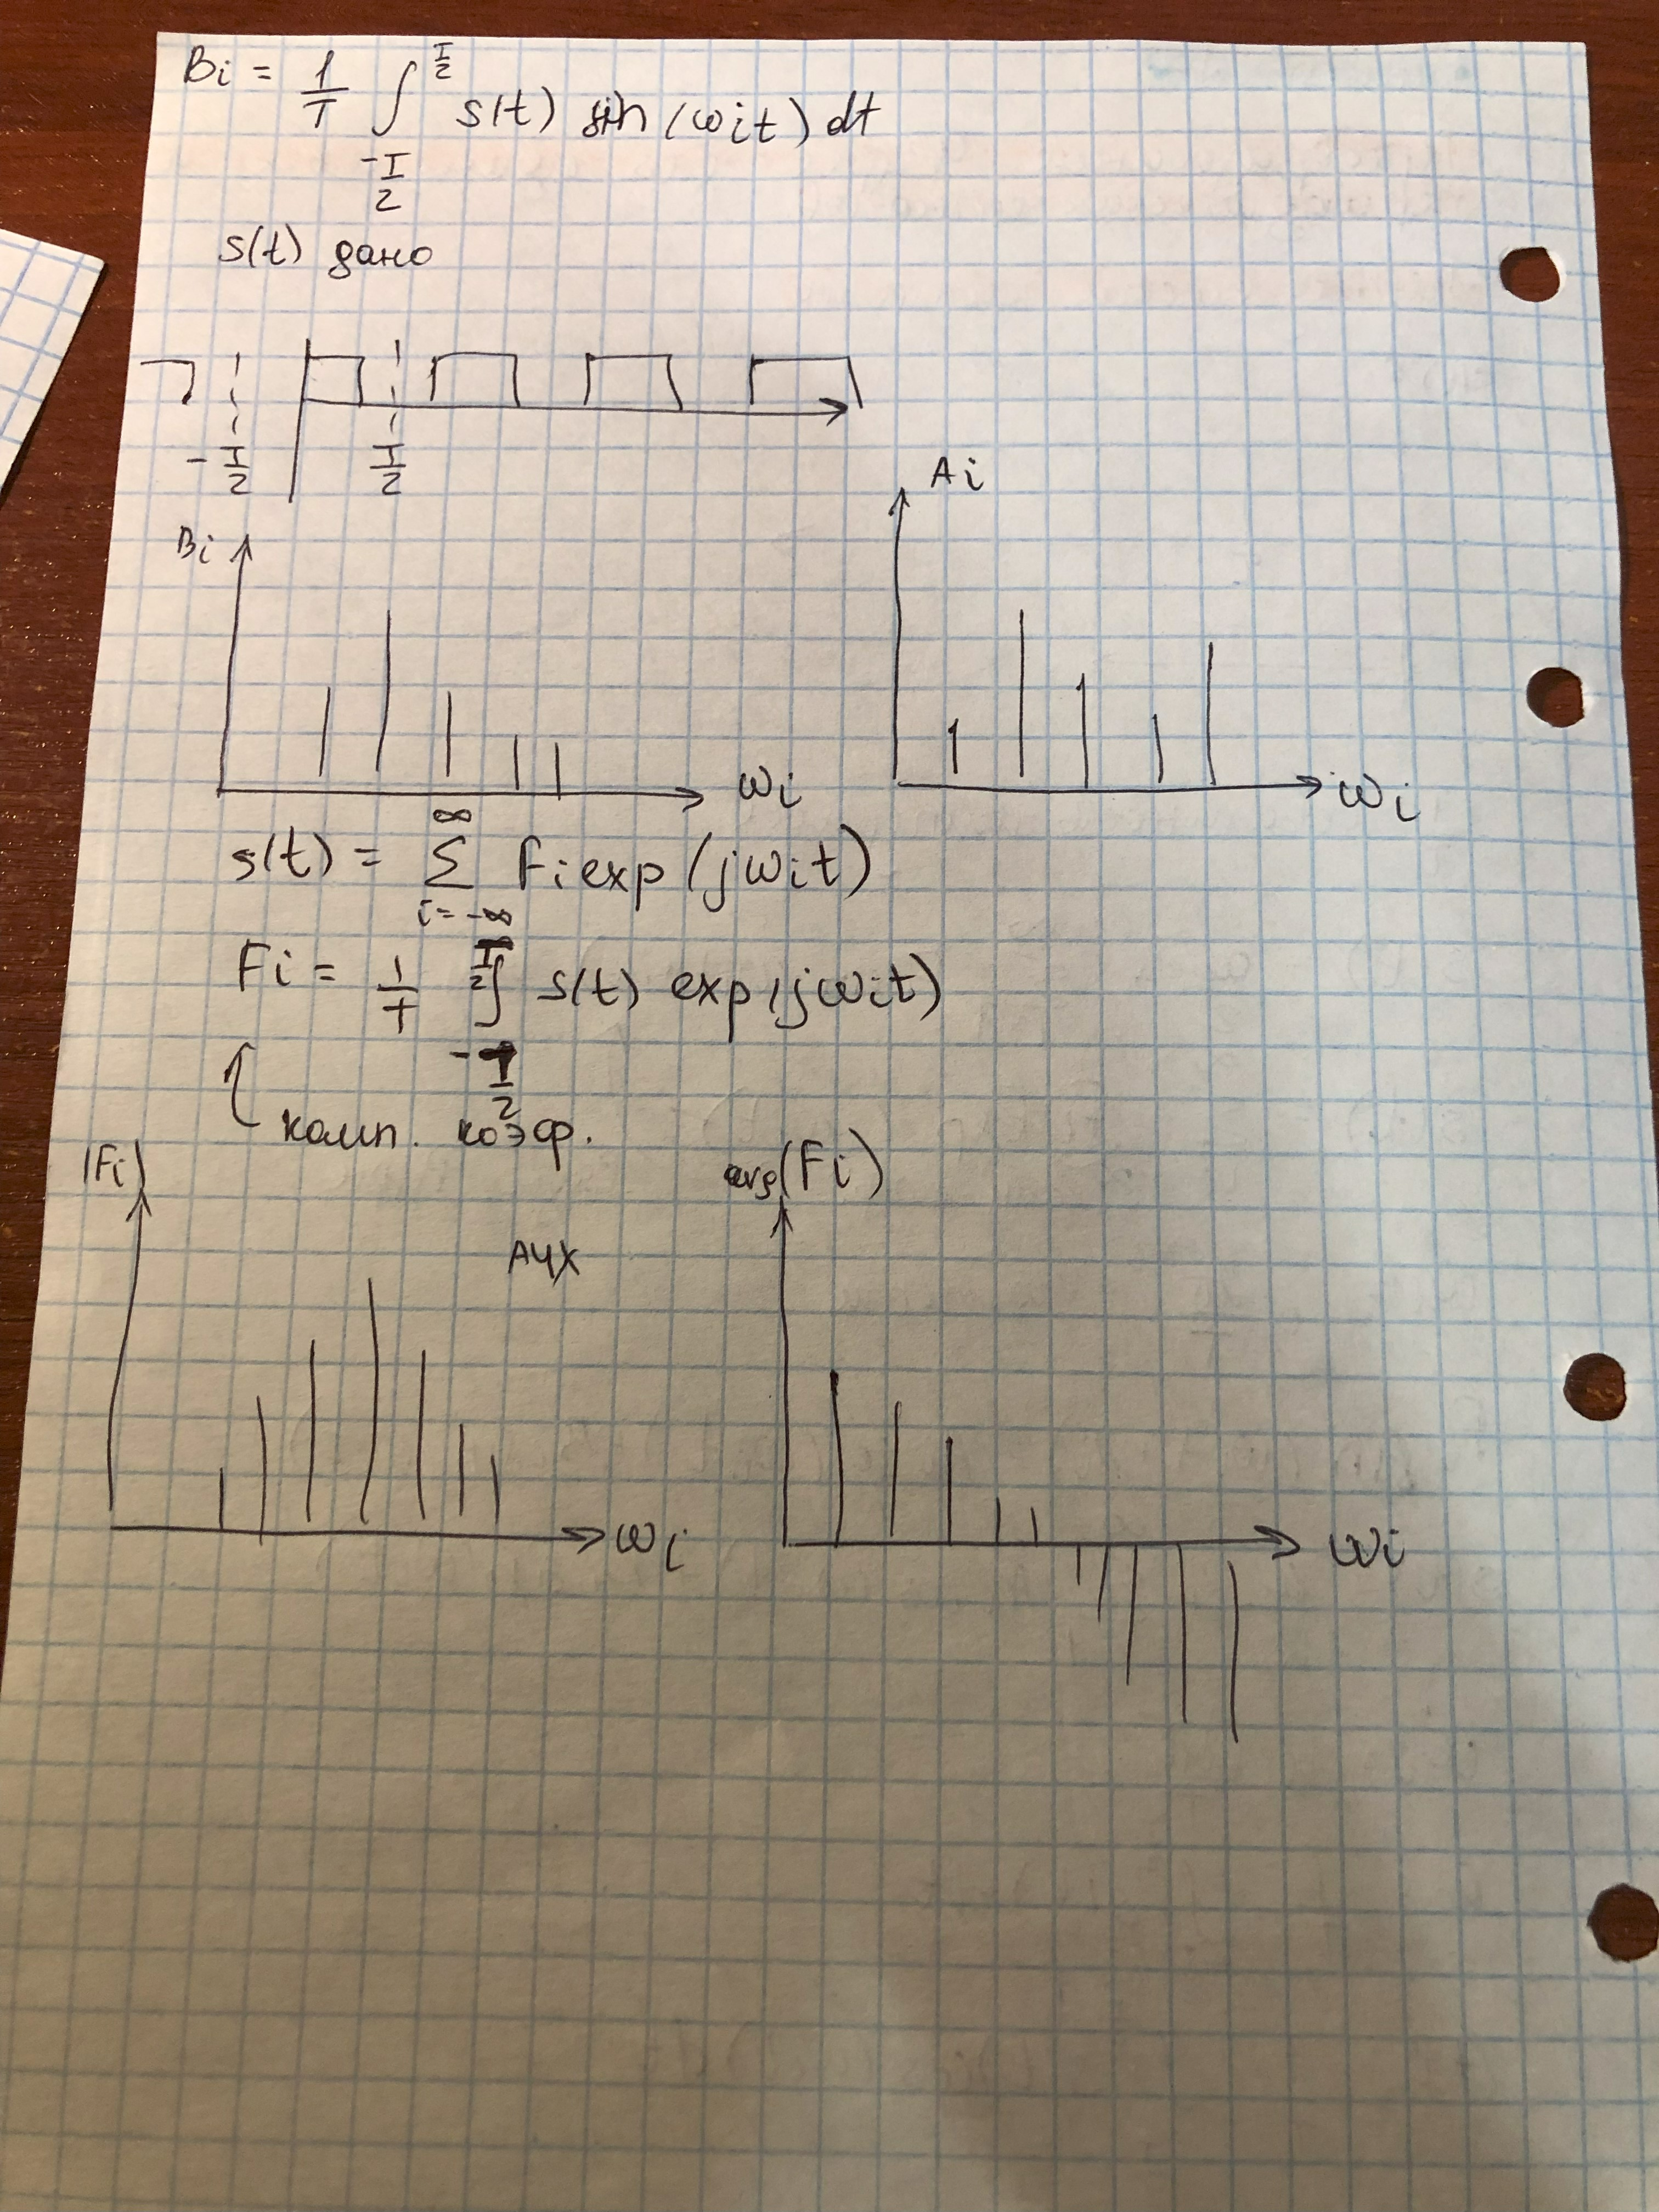 Bi = 1/T ∫_{-T/2}^{T/2} s(t) sin(ωit) dt
s(t) дано
-T/2 T/2
Bi ωi
Ai ωi
s(t) = ∑_{i=-∞}^{∞} Fi exp(jωit)
Fi = 1/T ∫_{-T/2}^{T/2} s(t) exp(jωit)
комп. коэф.
|Fi| АЧХ ωi
arg(Fi) ωi